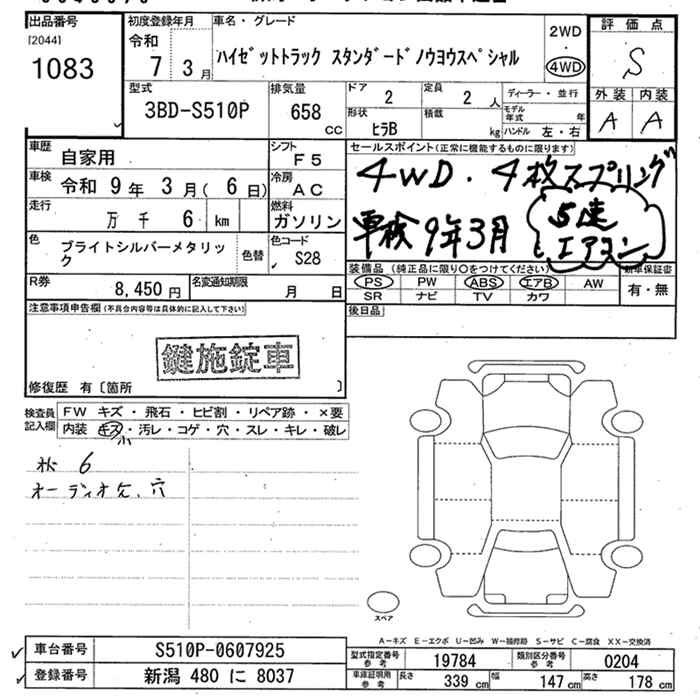 出品番号
[2044]
1083
初度登録年月
令和
7 3月
車名・グレード
ハイゼットトラック スタンダードノウヨウスペシャル
2WD
・
4WD
評価点
S
外装 内装
A A
型式
3BD-S510P
排気量
658
CC
ドア
2
定員
2 人
ディーラー・並行
形状
ヒラB
積載
kg
モデル年式 年
ハンドル 左・右
車歴
自家用
シフト
F5
車検
令和 9年 3月( 6日)
冷房
AC
走行
万 千 6 km
燃料
ガソリン
色
ブライトシルバーメタリック
色替
色コード
S28
R券
8,450円
名変通知期限
月 日
セールスポイント(正常に機能するものに限ります)
4WD・4枚スプリング
車検9年3月
5速
エアコン
装備品(純正品に限り○をつけてください)
PS PW ABS エアB AW
SR ナビ TV カワ
新車保証書
有・無
後日品
注意事項申告欄(不具合内容等は具体的に記入して下さい)
鍵施錠車
修復歴 有〔箇所 〕
検査員記入欄
FW キズ・飛石・ヒビ割・リペア跡・×要
内装 キズ・汚レ・コゲ・穴・スレ・キレ・破レ
小
6
オーディオ欠.穴
スペア
A−キズ E−エクボ U−凹み W−補修跡 S−サビ C−腐食 XX−交換済
車台番号
S510P-0607925
登録番号
新潟 480 に 8037
型式指定番号
参考
19784
類別区分番号
参考
0204
車庫証明用
参考
長さ
339 cm
幅
147 cm
高さ
178 cm